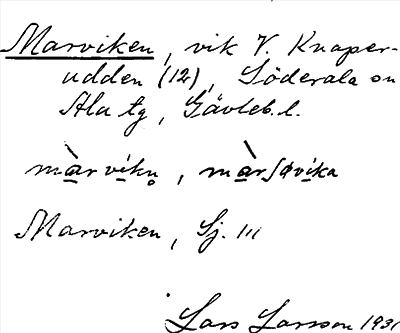 Marviken, vik V. Knaper-
udden (12), Söderala sn
Ala tg, Gävleb. l.
màrvikn̥, màrsøvika
Marviken, Sj. III
Lars Larsson 1931